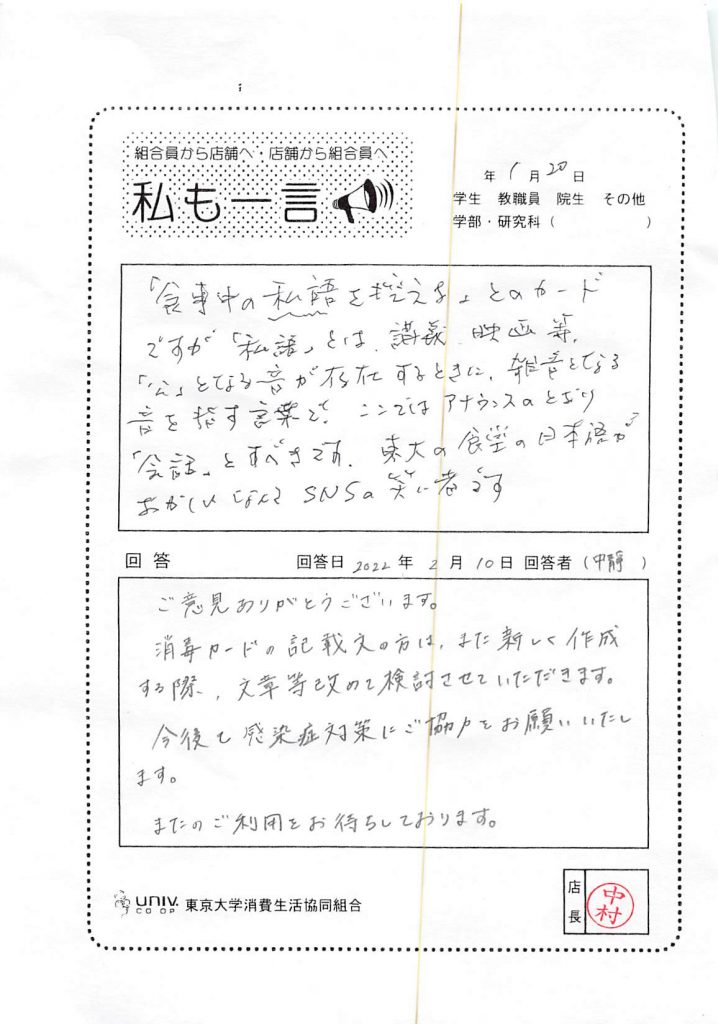 組合員から店舗へ・店舗から組合員へ
私も一言
年 1月20日
学生 教職員 院生 その他
学部・研究科( )
「食事中の私語を控えよ」とのカード
ですが「私語」とは、講義、映画等、
「公」となる音が存在するときに、雑音となる
音を指す言葉で、ここではアナウンスのとおり
「会話」とすべきです。東大の食堂の日本語が
おかしいなんて SNSの笑い者です
回答 回答日 2022年 2月10日 回答者(中静)
ご意見ありがとうございます。
消毒カードの記載文の方は、また新しく作成
する際、文章等改めて検討させていただきます。
今後も感染症対策にご協力をお願いいたし
ます。
またのご利用をお待ちしております。
UNIV. CO-OP 東京大学消費生活協同組合
店長 中村